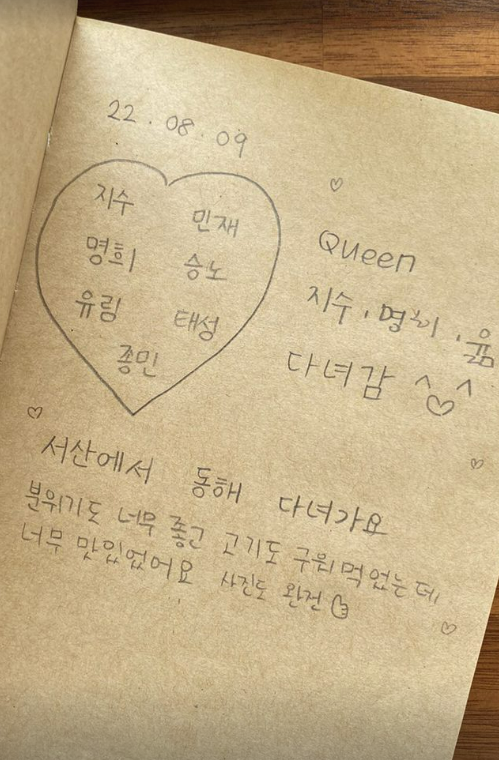 22.08.09
지수 민재
명희 승노
유림 태성
종민
Queen
지수, 명희, 윪
다녀감 ^♡^
서산에서 동해 다녀가요
분위기도 너무 좋고 고기도 구워먹었는데,
너무 맛있었어요 사진도 완전👍